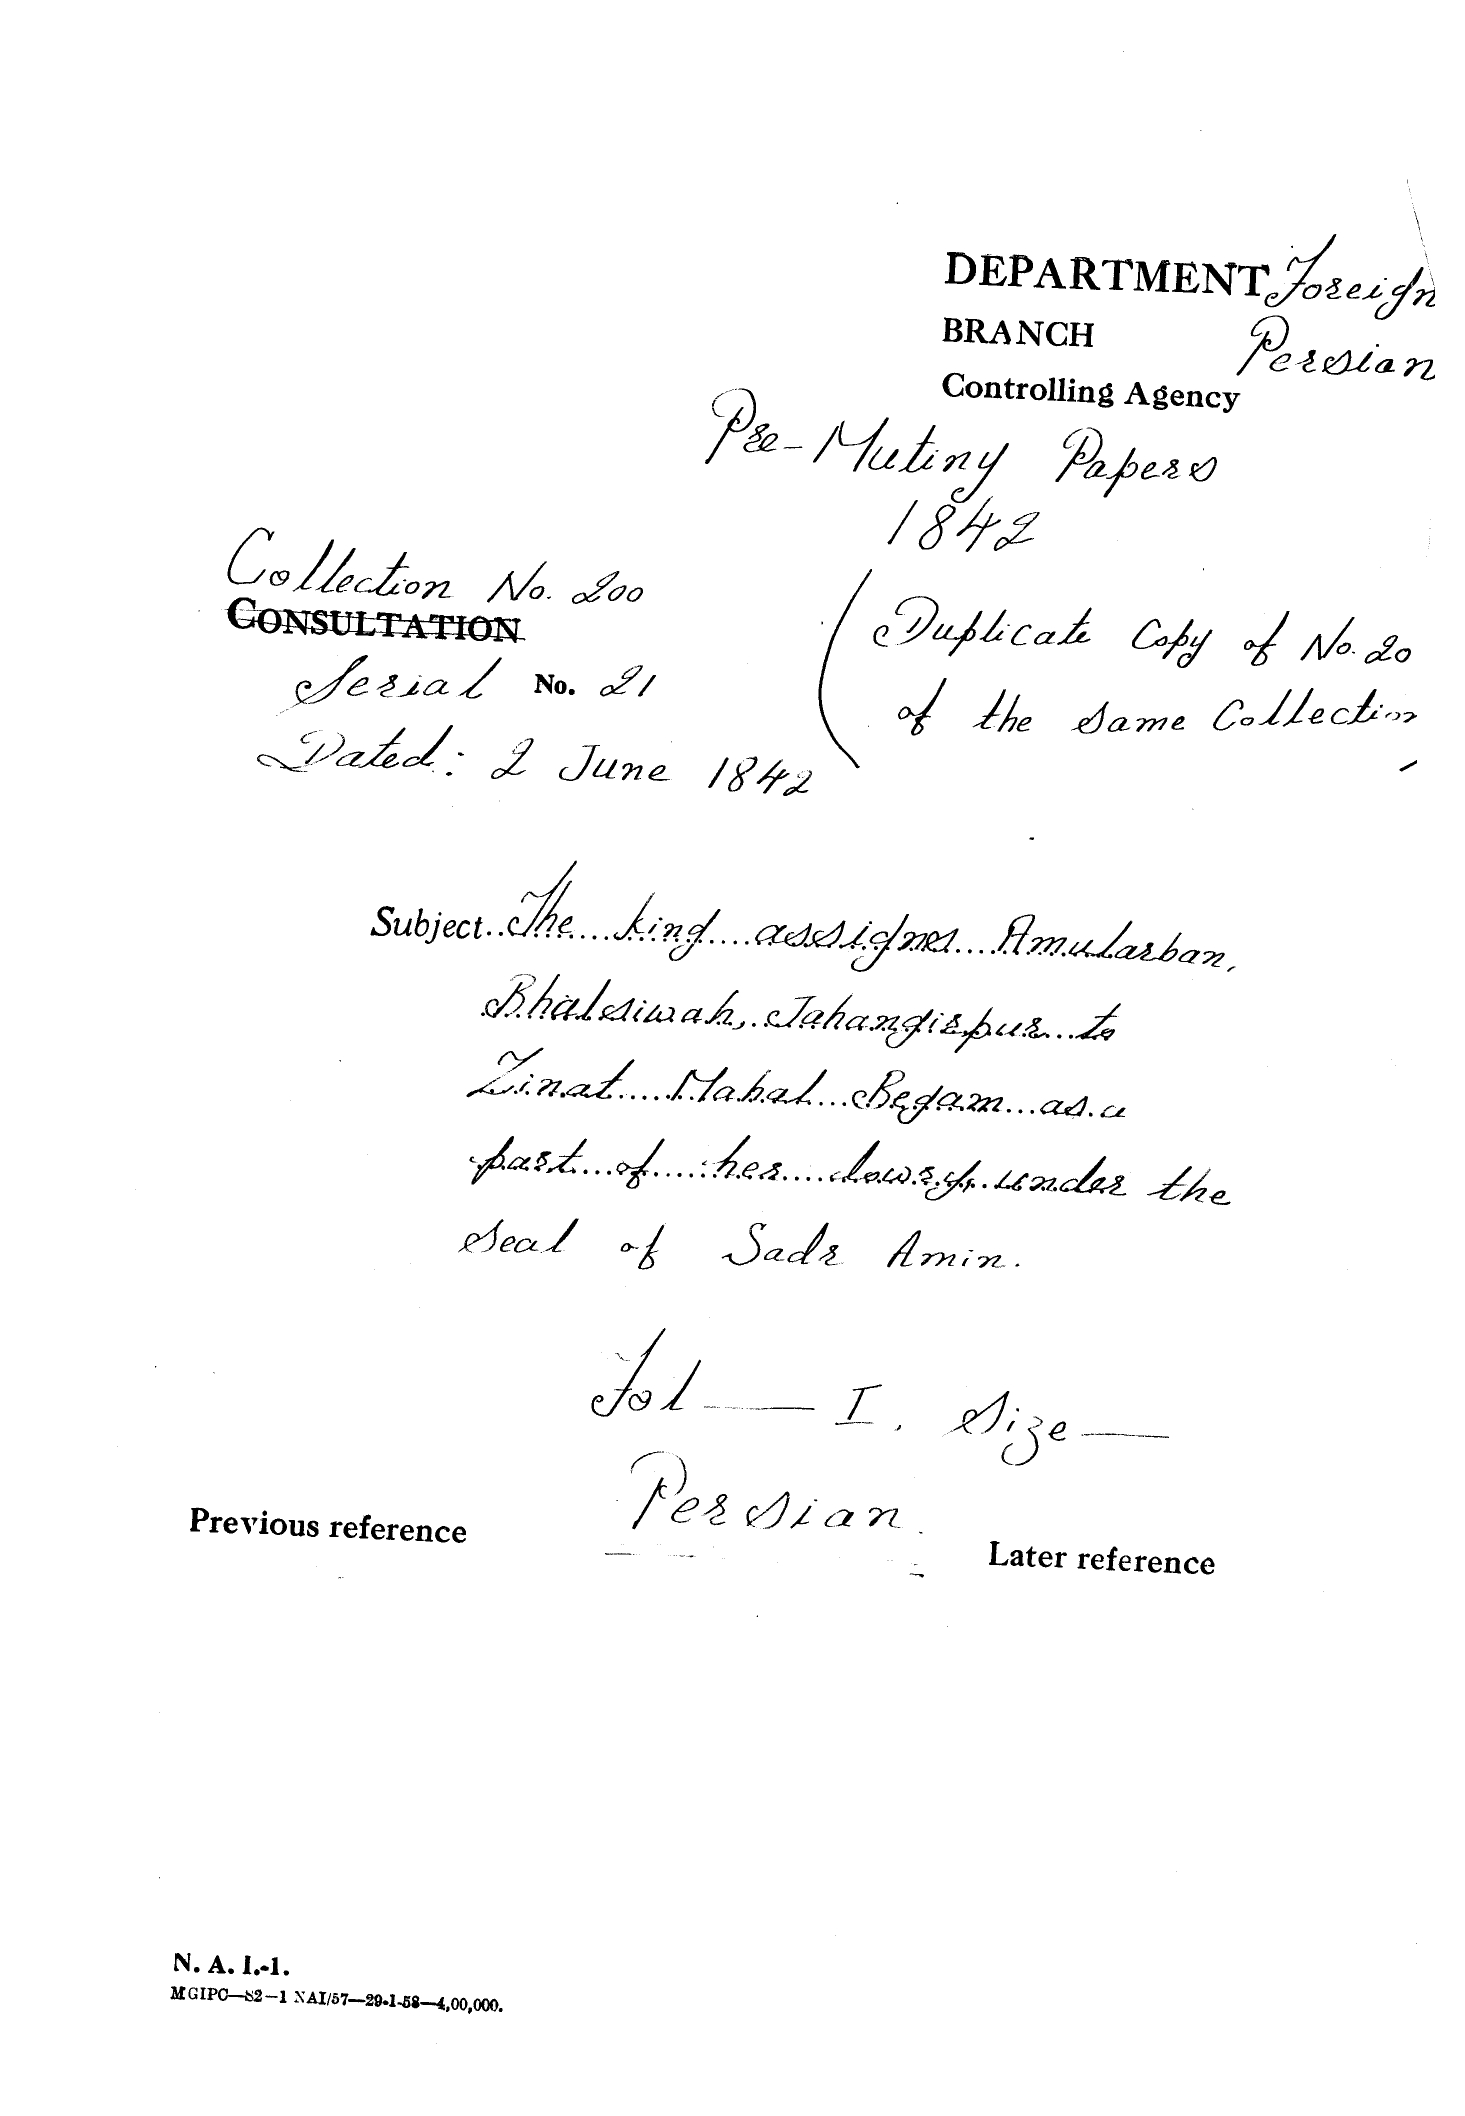 DEPARTMENT Foreign
BRANCH Persian
Controlling Agency
Pre-Mutiny Papers
1842
Collection No. 200
CONSULTATION
Serial No. 21
Dated: 2 June 1842
(Duplicate Copy of No. 20
of the same Collection
Subject..The....king....assignes....Amularban,
Bhalsiwah,.Jahangirpur...to
Zinat....Mahal...Begam...as.a
part...of....her....dowry,.under the
seal of Sadr Amin.
Fol — I. Size —
Persian.
Previous reference
Later reference
N. A. I.-1.
MGIPC—S2—1 NAI/57—29-1-58—4,00,000.